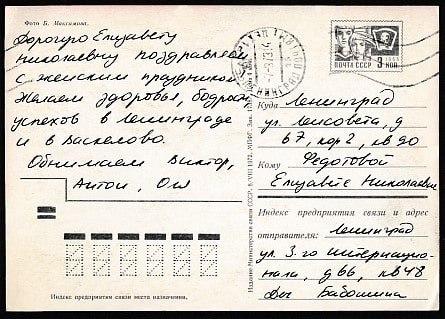 Фото Б. Максимова.
Дорогую Елизавету
Николаевну поздравляем
с женским праздником
Желаем здоровья, бодрости
успехов в Ленинграде
и в Васкелово.
Обнимаем Виктор,
Антон, Оля
Индекс предприятия связи места назначения.
Издание Министерства связи СССР.
ПОЧТА СССР
3 коп.
Куда Ленинград
ул. Ленсовета, д
67, кор 2, кв 90
Кому Федотовой
Елизавете Николаевне
Индекс предприятия связи и адрес
отправителя: Ленинград
ул. 3-го интернацио-
нала, д 66, кв 48